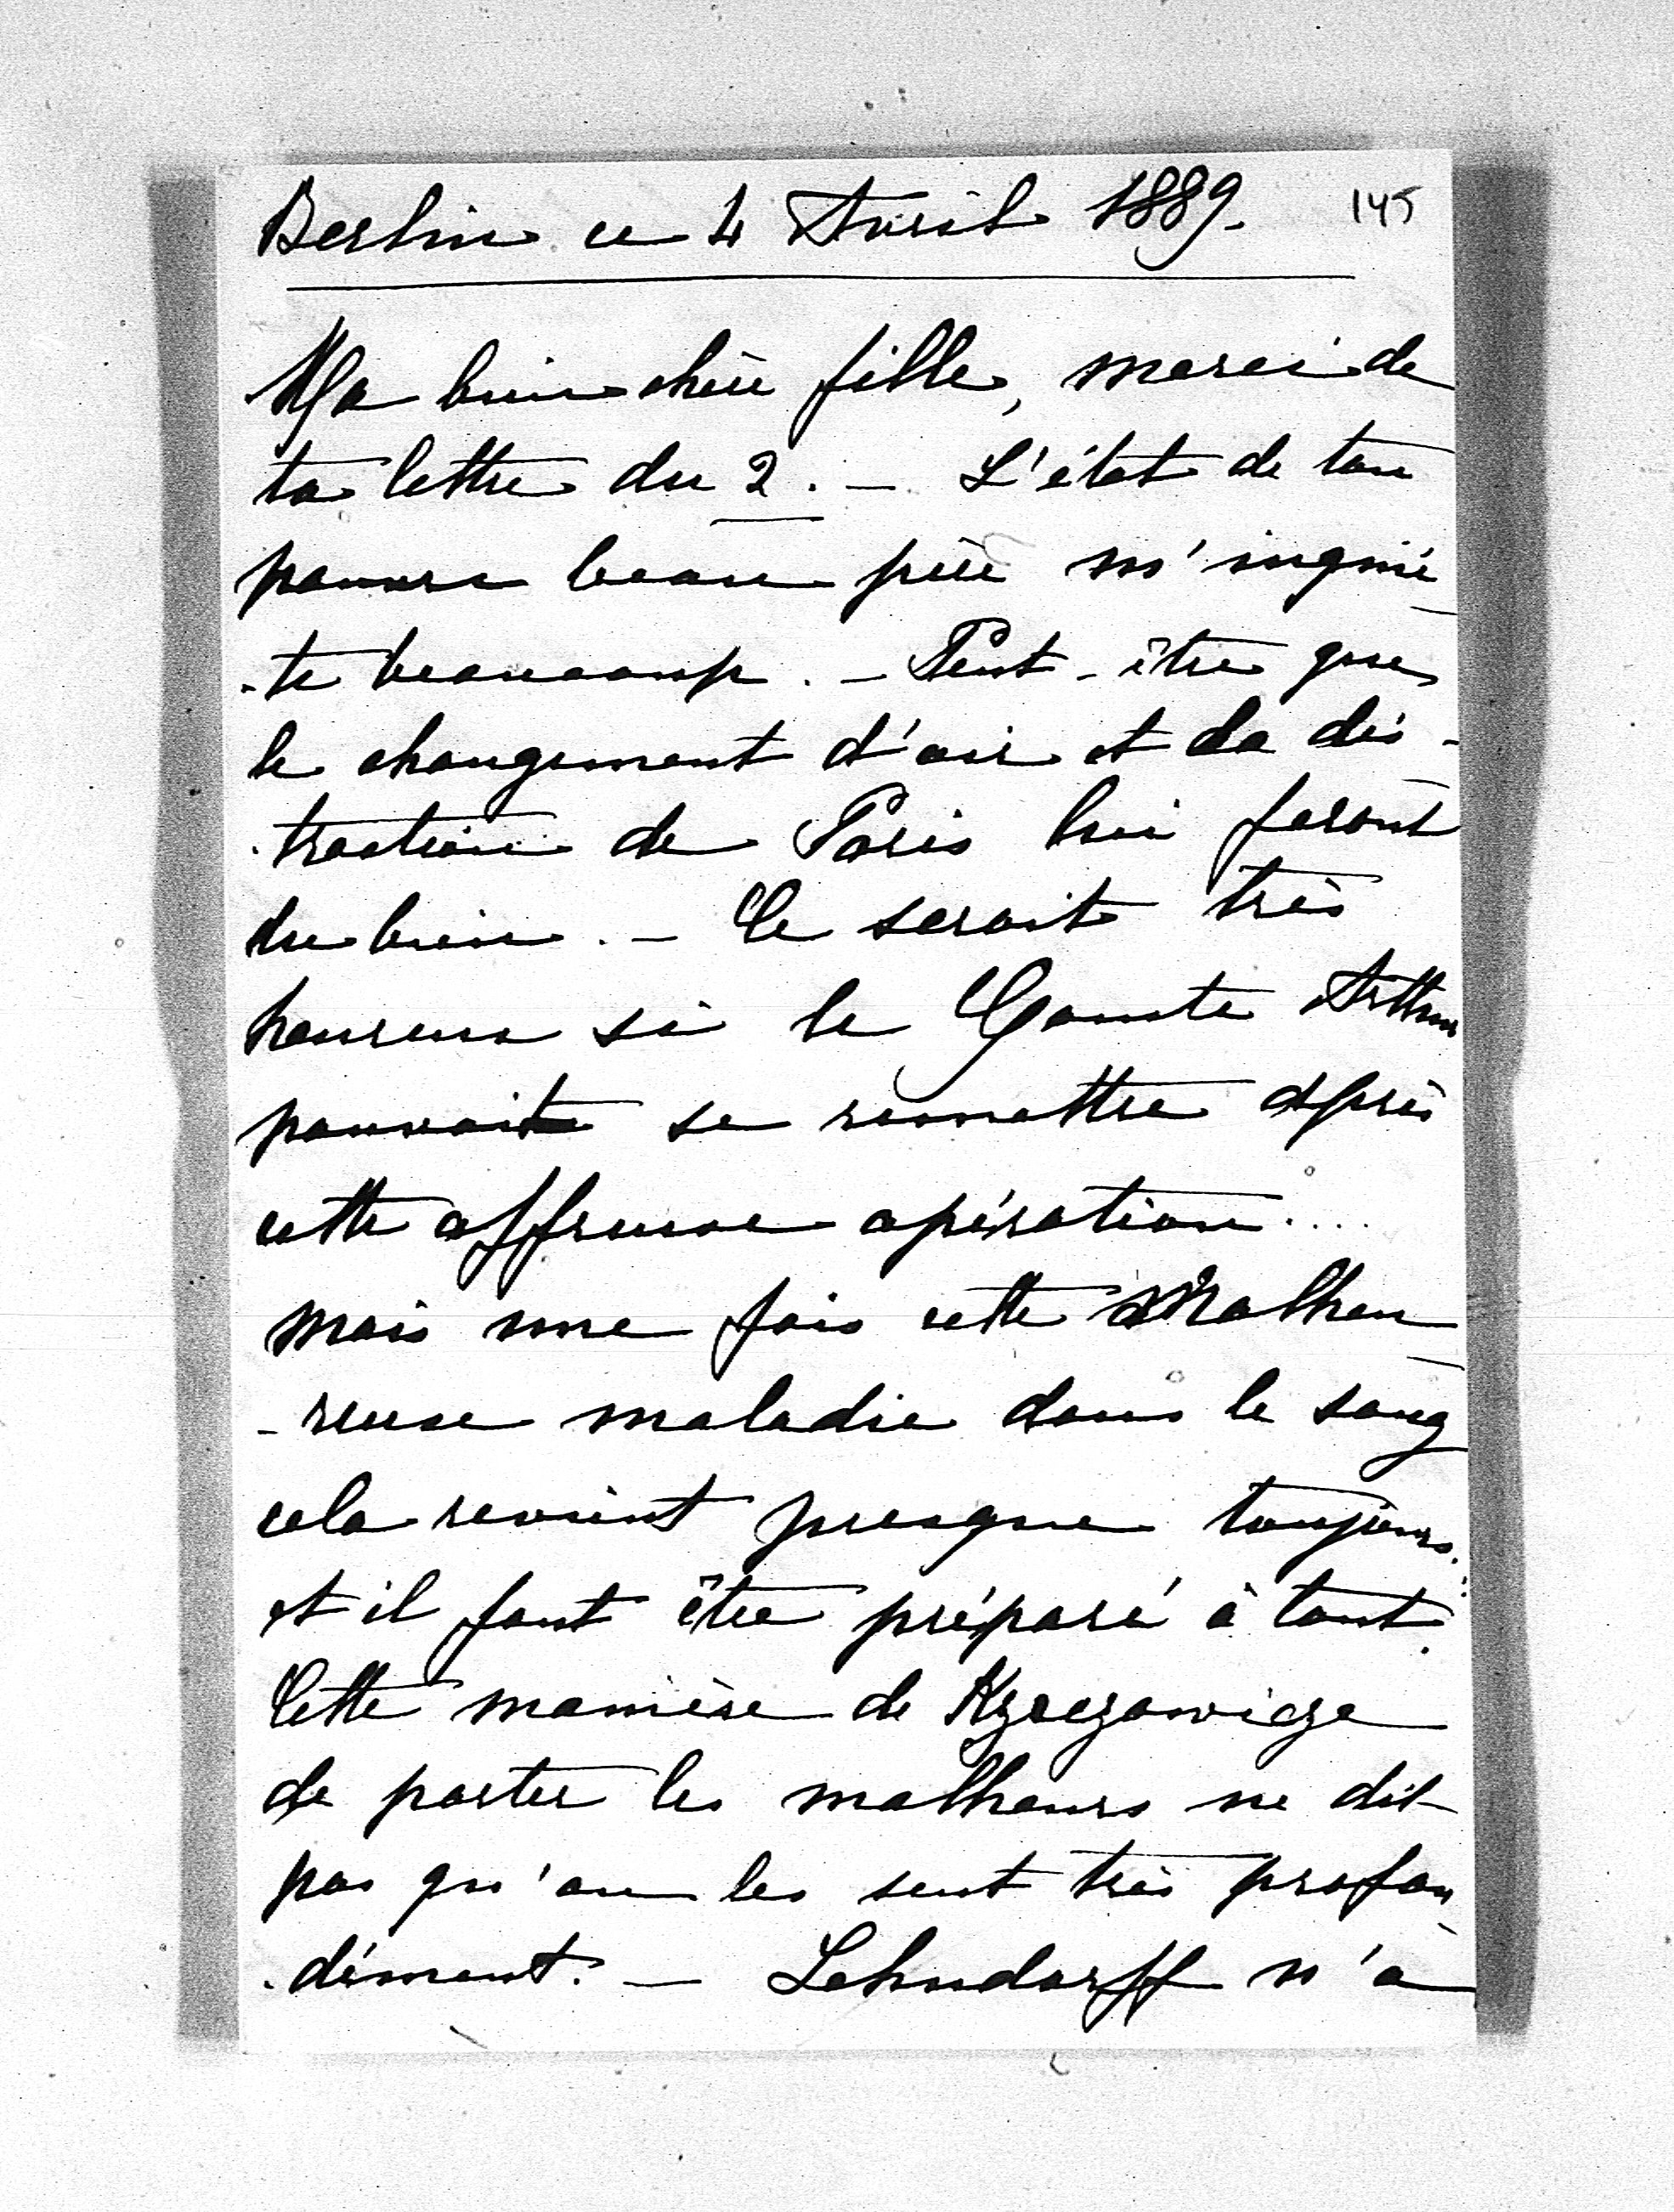 Berlin ce 4 Avril 1889.
145
Ma bien chère fille, merci de
ta lettre du 2. — L'état de ton
pauvre beau père m'inquiè
-te beaucoup. — Peut-être que
le changement d'air et la dis-
-traction de Paris lui feront
du bien. — Ce serait très
heureux si le Comte Arthur
pouvait se remettre après
cette affreuse opération....
mais une fois cette malheu
-reuse maladie dans le sang
cela revient presque toujours.
et il faut être préparé à tout.
Cette manière de
de porter les malheurs ne dit
pas qu'on les sent très profon
-dément. — Lehndorff n'a